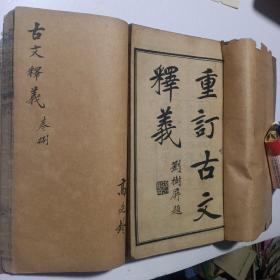 重訂古文
釋義
劉樹屏題
古文釋義 卷捌